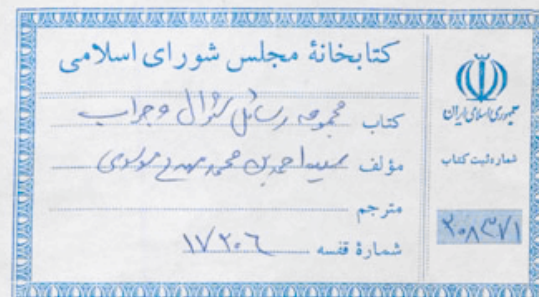 کتابخانهٔ مجلس شورای اسلامی
کتاب مجموعه رسائل سؤال و جواب
مؤلف سید احمد بن محمد مهدی موسوی
مترجم
شمارهٔ قفسه ۱۷۲۰۶
جمهوری اسلامی ایران
شماره ثبت کتاب
۲۰۸۳۷۱